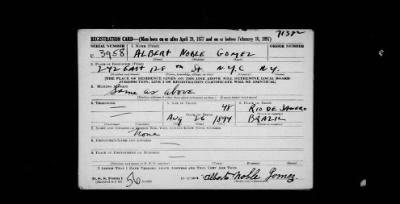 REGISTRATION CARD—(Men born on or after April 28, 1877 and on or before February 16, 1897)
SERIAL NUMBER 1. NAME (Print) ORDER NUMBER
3958 ALBERT NOBLE GOMEZ
2. PLACE OF RESIDENCE (Print)
242 EAST 128 St. N.Y.C N.Y.
[THE PLACE OF RESIDENCE GIVEN ON THE LINE ABOVE WILL DETERMINE LOCAL BOARD
JURISDICTION; LINE 2 OF REGISTRATION CERTIFICATE WILL BE IDENTICAL]
3. MAILING ADDRESS
Same as above
4. TELEPHONE 5. AGE IN YEARS 6. PLACE OF BIRTH
48 RIO DE JANERO
DATE OF BIRTH
Aug 26 1894 BRAZIL
None
8. EMPLOYER'S NAME AND ADDRESS
9. PLACE OF EMPLOYMENT OR BUSINESS
I AFFIRM THAT I HAVE VERIFIED ABOVE ANSWERS AND THAT THEY ARE TRUE.
D. S. S. Form 1
Alberto Noble Gomez